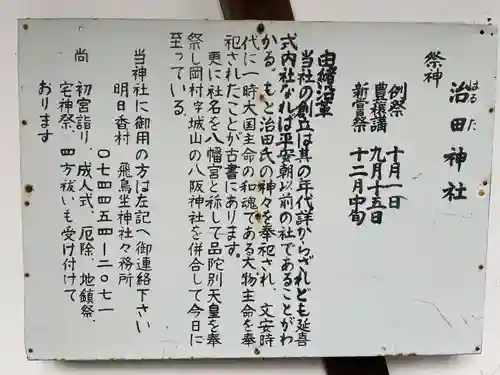 はるた
治田神社
祭神
例祭 十月一日
豊穣講 九月十五日
新嘗祭 十二月中旬
由緒沿革
当社の創立は其の年代詳からざれども延喜
式内社なれば平安朝以前の社であることがわ
かる。もと治田氏の神々を奉祀され、文安時
代に一時大国主命の和魂である大物主命を奉
祀されたことが古書にあります。
更に社名を八幡宮と称して品陀別天皇を奉
祭し岡村字城山の八阪神社を併合して今日に
至っている。
当神社に御用の方は左記へ御連絡下さい
明日香村 飛鳥坐神社々務所
〇七四四五四ー二〇七一
尚 初宮詣り、成人式、厄除、地鎮祭、
宅神祭、四方祓いも受け付けて
おります